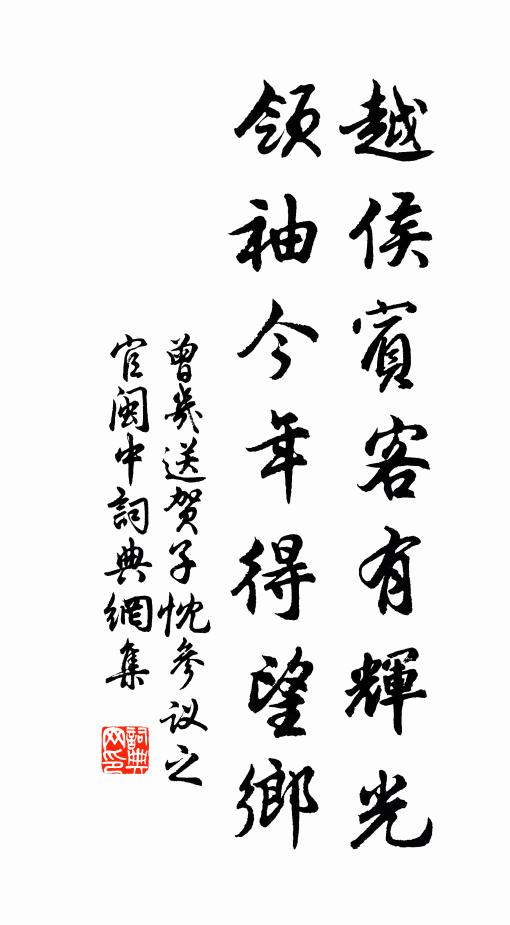 越侯賓客有輝光
領袖今年得望鄉
曾幾送賀子忱參议之
官闽中詞典網集
詞典网印